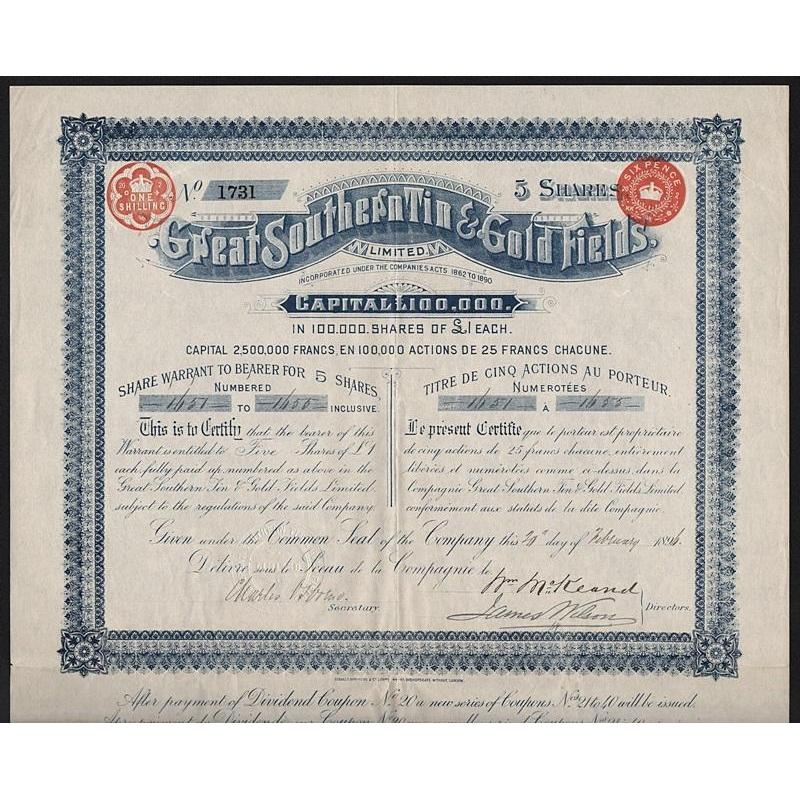 ONE
SHILLING
No 1731
5 SHARES
SIX PENCE
Great Southern Tin & Gold Fields.
LIMITED.
INCORPORATED UNDER THE COMPANIES ACTS 1862 TO 1890
CAPITAL £100,000.
IN 100.000. SHARES OF £1 EACH.
CAPITAL 2,500,000 FRANCS, EN 100,000 ACTIONS DE 25 FRANCS CHACUNE.
SHARE WARRANT TO BEARER FOR 5 SHARES,
NUMBERED
1651 TO 1655 INCLUSIVE.
This is to Certify that the bearer of this
Warrant is entitled to Five Shares of £1
each, fully paid up, numbered as above in the
Great Southern Tin & Gold Fields Limited,
subject to the regulations of the said Company.
TITRE DE CINQ ACTIONS AU PORTEUR.
NUMEROTÉES
1651 À 1655
Le présent Certifie que le porteur est propriétaire
de cinq actions de 25 francs chacune, entièrement
libérées, et numérotées comme ci-dessus, dans la
Compagnie Great Southern Tin & Gold Fields Limited
conformément aux statuts de la dite Compagnie.
Given under the Common Seal of the Company this 20th day of February 1894.
Délivré sous le Sceau de la Compagnie le
Charles Osborne
Secretary.
Wm McKeand
James Wilson
Directors.
After payment of Dividend Coupon No 20 a new series of Coupons Nos 21 to 40 will be issued.